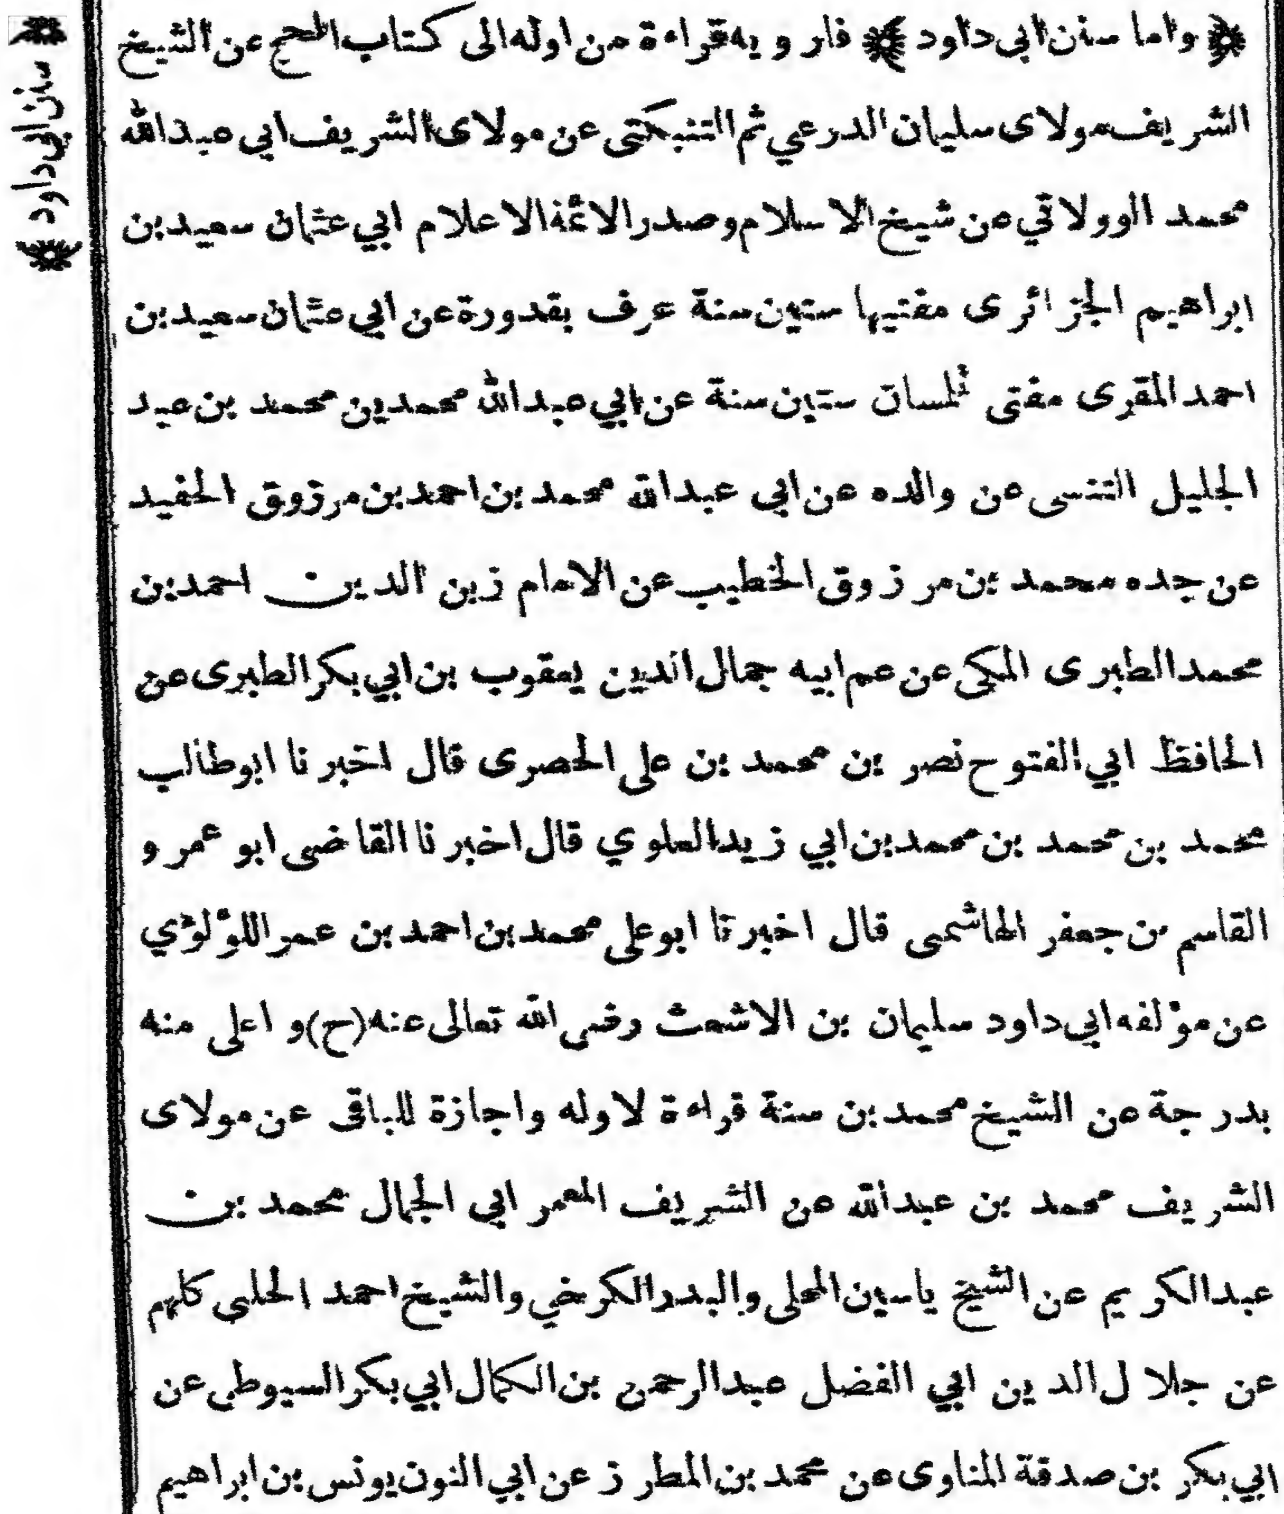 ﴿ واما سنن ابي داود ﴾ فارويه قراءة من اوله الى كتاب الحج عن الشيخ
الشريف مولاى سليمان الدرعي ثم التنبكتى عن مولاى الشريف ابي عبدالله
محمد الوولاتي عن شيخ الاسلام وصدر الائمة الاعلام ابي عثمان سعيد بن
ابراهيم الجزائرى مفتيها ستين سنة عرف بقدورة عن ابي عثمان سعيد بن
احمد المقرى مفتى تلمسان ستين سنة عن ابي عبدالله محمد بن محمد بن عبد
الجليل التنسى عن والده عن ابي عبدالله محمد بن احمد بن مرزوق الحفيد
عن جده محمد بن مرزوق الخطيب عن الامام زين الدين احمد بن
محمد الطبرى المكى عن عم ابيه جمال الدين يعقوب بن ابي بكر الطبرى عن
الحافظ ابي الفتوح نصر بن محمد بن على الحصرى قال اخبرنا ابوطالب
محمد بن محمد بن محمد بن ابي زيد العلوي قال اخبرنا القاضى ابو عمرو
القاسم بن جعفر الهاشمى قال اخبرنا ابوعلى محمد بن احمد بن عمر اللؤلؤي
عن مؤلفه ابي داود سليمان بن الاشعث رضى الله تعالى عنه (ح) و اعلى منه
بدرجة عن الشيخ محمد بن سنة قراءة لاوله واجازة للباقى عن مولاى
الشريف محمد بن عبدالله عن الشريف المعمر ابي الجمال محمد بن
عبدالكريم عن الشيخ ياسين المحلى والبدر الكرخي والشيخ احمد الحلبى كلهم
عن جلال الدين ابي الفضل عبدالرحمن بن الكمال ابي بكر السيوطى عن
ابي بكر بن صدقة المناوى عن محمد بن المطرز عن ابي النون يونس بن ابراهيم
﴿ سنن ابي داود ﴾